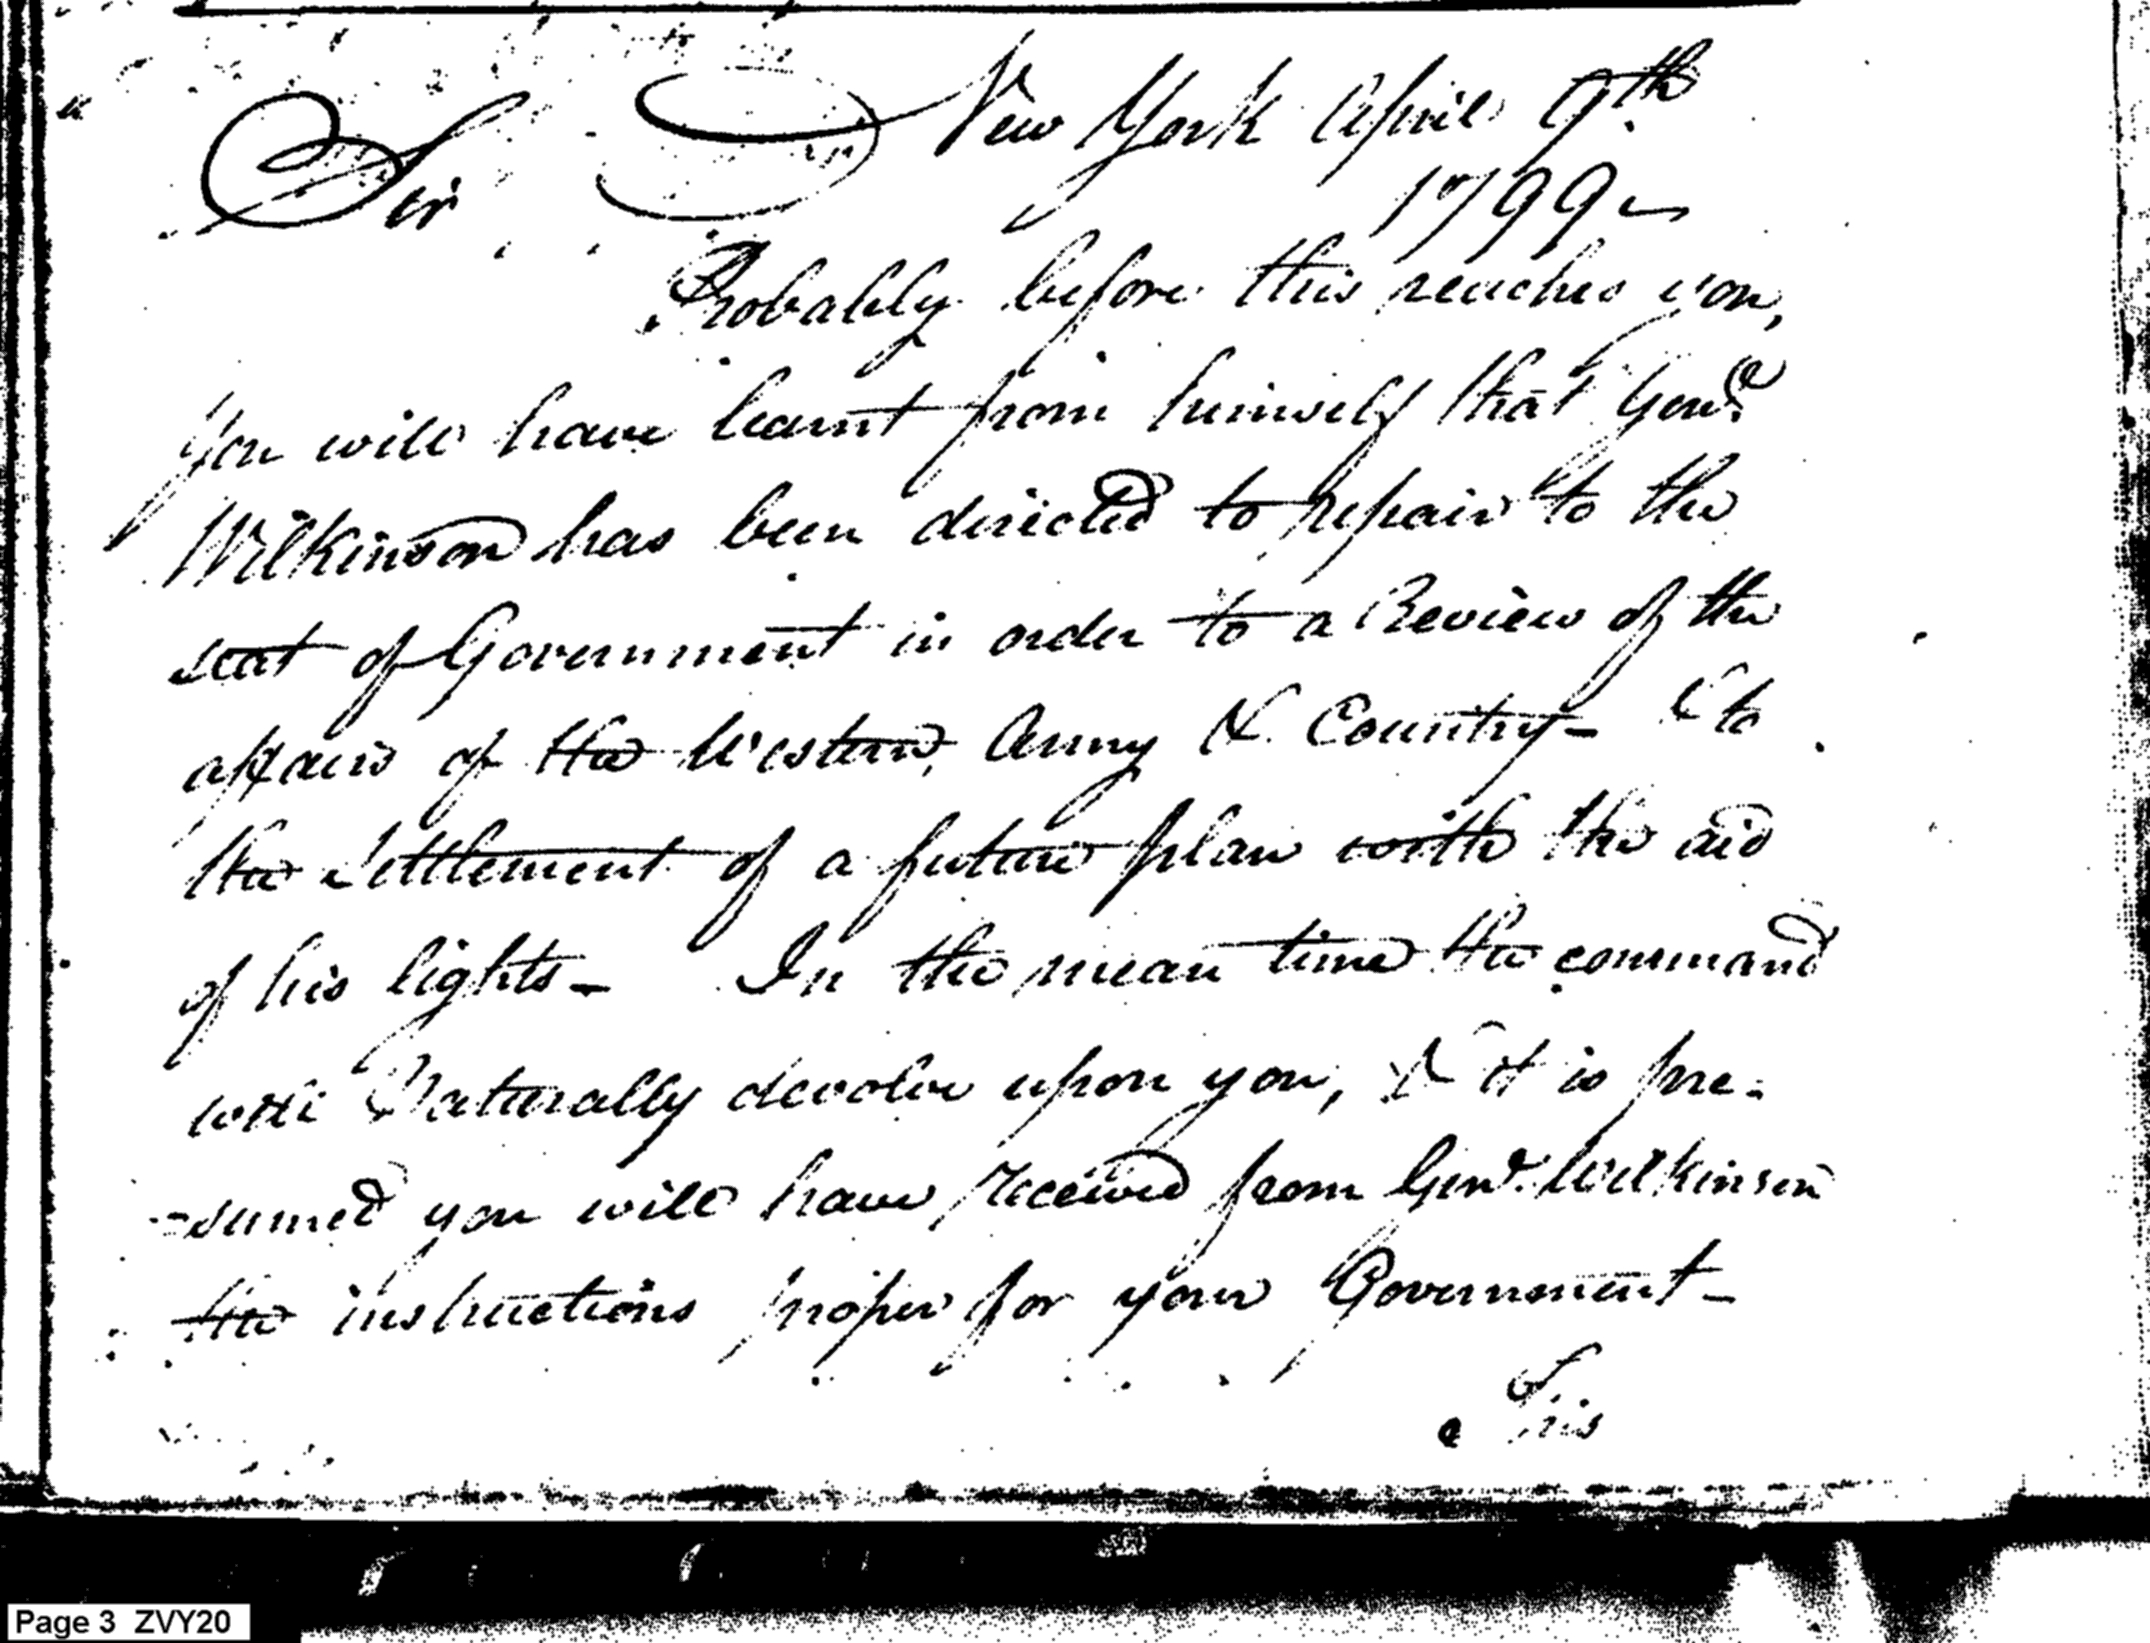 New York April 9th
Sir
1799-
Probably before this reaches you,
you will have learnt from himself that Genl
Wilkinson has been directed to repair to the
seat of Government in order to a Review of the
affairs of the Western Army & Country- & to
the settlement of a future plan with the aid
of his lights- In the mean time the command
will Naturally devolve upon you, & it is pre-
-sumed you will have received from Genl. Wilkinson
the instructions proper for your Government-
This
Page 3 ZVY20